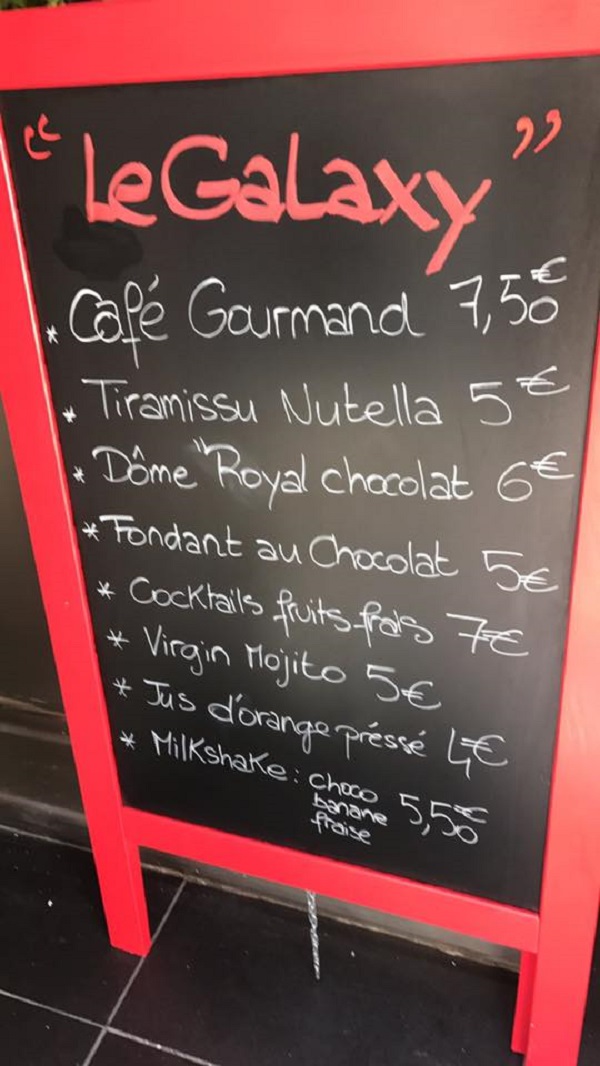 “ Le Galaxy ”
* Café Gourmand 7,50€
* Tiramissu Nutella 5€
* Dôme "Royal chocolat 6€
* Fondant au Chocolat 5€
* Cocktails fruits frais 7€
* Virgin Mojito 5€
* Jus d'orange préssé 4€
* Milkshake: choco 5,50€
banane
fraise